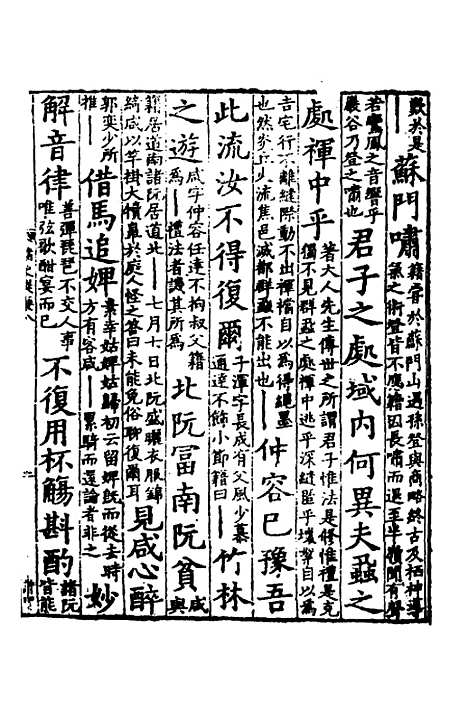 歎於是｜｜蘇門嘯籍嘗於蘇門山遇孫登與商略終古及栖神導氣之術登皆不應籍因長嘯而退至半嶺聞有聲
若鸞鳳之音響乎巖谷乃登之嘯也君子之處域内何異夫蝨之
處褌中乎著大人先生傳世之所謂君子惟法是修惟禮是克獨不見群蝨之處褌中逃乎深縫匿乎壞絮自以爲
吉宅行不離縫際動不出褌襠自以爲得繩墨也然炎丘火流焦邑滅都群蝨不能出也｜｜仲容已豫吾
此流汝不得復爾子渾字長成有父風少慕通達不飾小節籍曰｜｜竹林
之遊咸字仲容任達不拘叔父籍爲｜｜禮法者譏其所爲北阮富南阮貧咸與
籍居道南諸阮居道北｜｜七月七日北阮盛曬衣服錦綺咸以竿掛大犢鼻於庭人怪之答曰未能免俗聊復爾耳見咸心醉
郭奕少所推｜｜借馬追婢素幸姑婢姑歸初云留婢既而從去時方有客咸｜｜累騎而還論者非之妙
解音律善彈琵琶不交人事唯弦歌酣宴而已不復用杯觴斟酌諸阮皆能